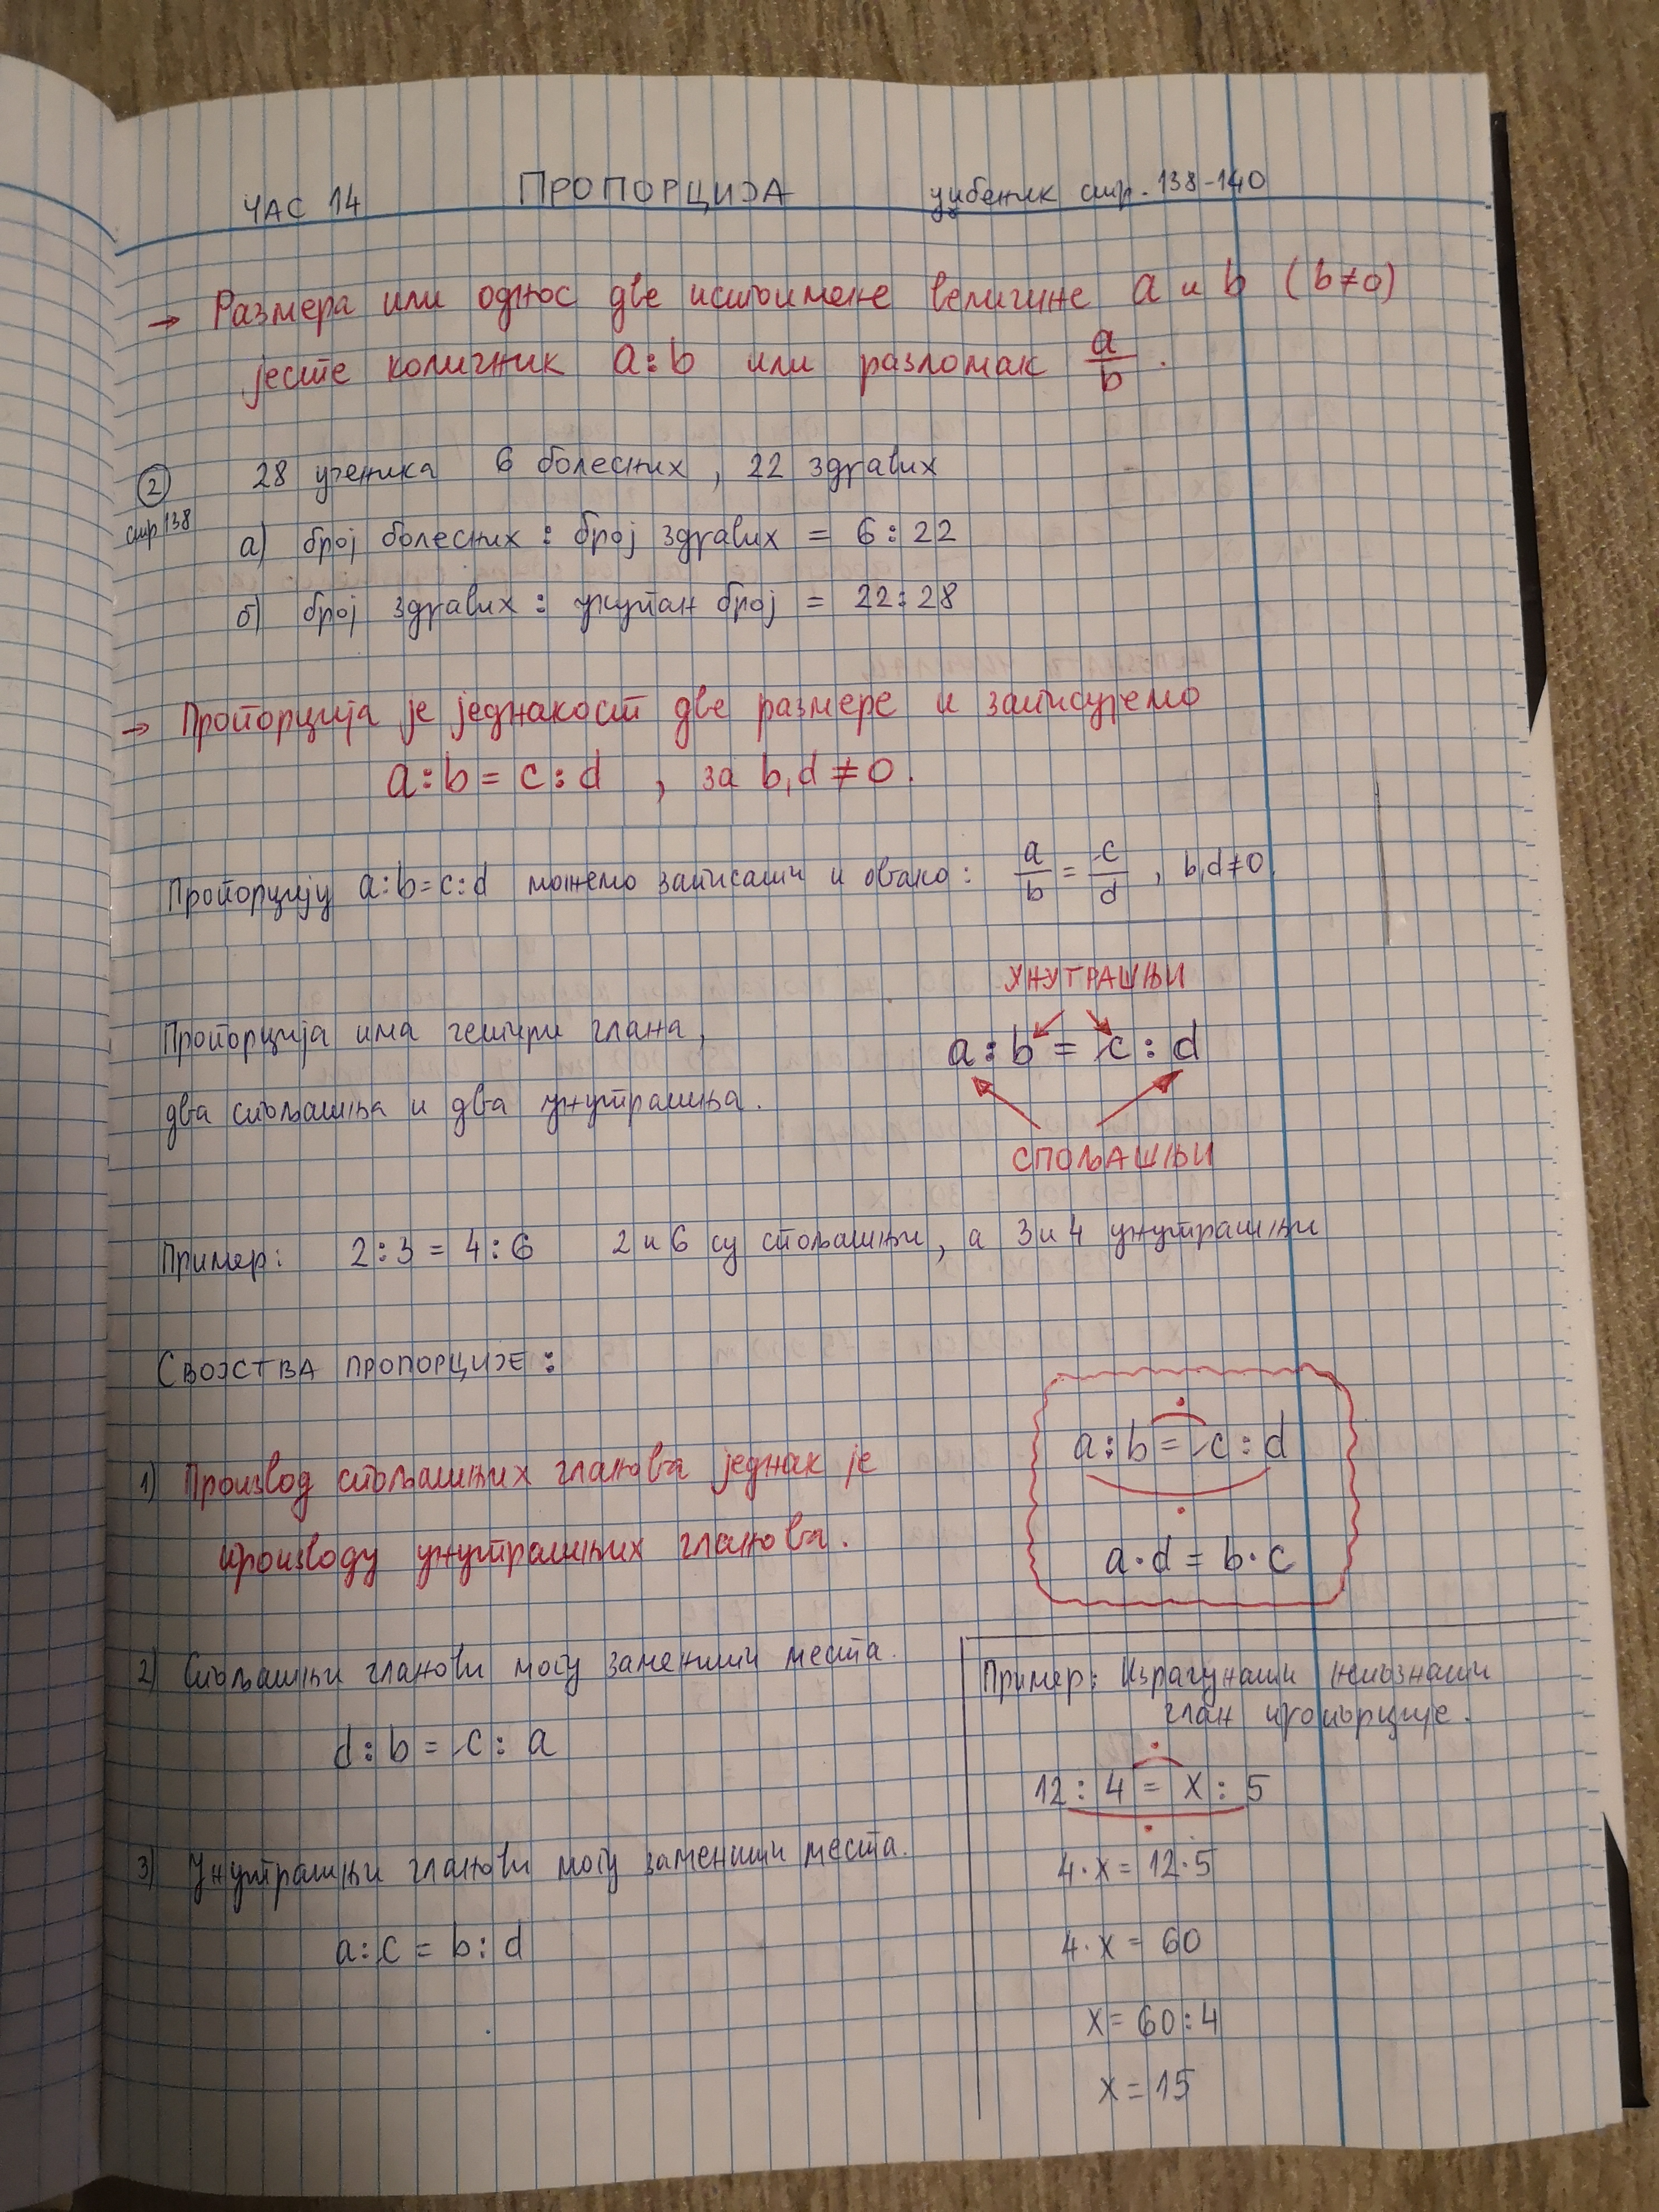 ЧАС 14 ПРОПОРЦИЈА уџбеник стр. 138-140
→ Размера или однос две истоимене величине a и b (b≠0)
јесте количник a:b или разломак a/b.
② 28 ученика 6 болесних, 22 здравих
стр 138
а) број болесних : број здравих = 6:22
б) број здравих : укупан број = 22:28
→ Пропорција је једнакост две размере и записујемо
a:b = c:d , за b,d ≠ 0.
Пропорцију a:b=c:d можемо записати и овако: a/b = c/d , b,d≠0.
УНУТРАШЊИ
Пропорција има четири члана,
a:b = c:d
два спољашња и два унутрашња.
СПОЉАШЊИ
Пример: 2:3 = 4:6 2 и 6 су спољашњи, а 3 и 4 унутрашњи
СВОЈСТВА ПРОПОРЦИЈЕ:
a:b = c:d
1) Производ спољашњих чланова једнак је
производу унутрашњих чланова.
a·d = b·c
2) Спољашњи чланови могу заменити места.
d:b = c:a
3) Унутрашњи чланови могу заменити места.
a:c = b:d
Пример: Израчунати непознати
члан пропорције.
12:4 = x:5
4·x = 12·5
4·x = 60
x = 60:4
x = 15